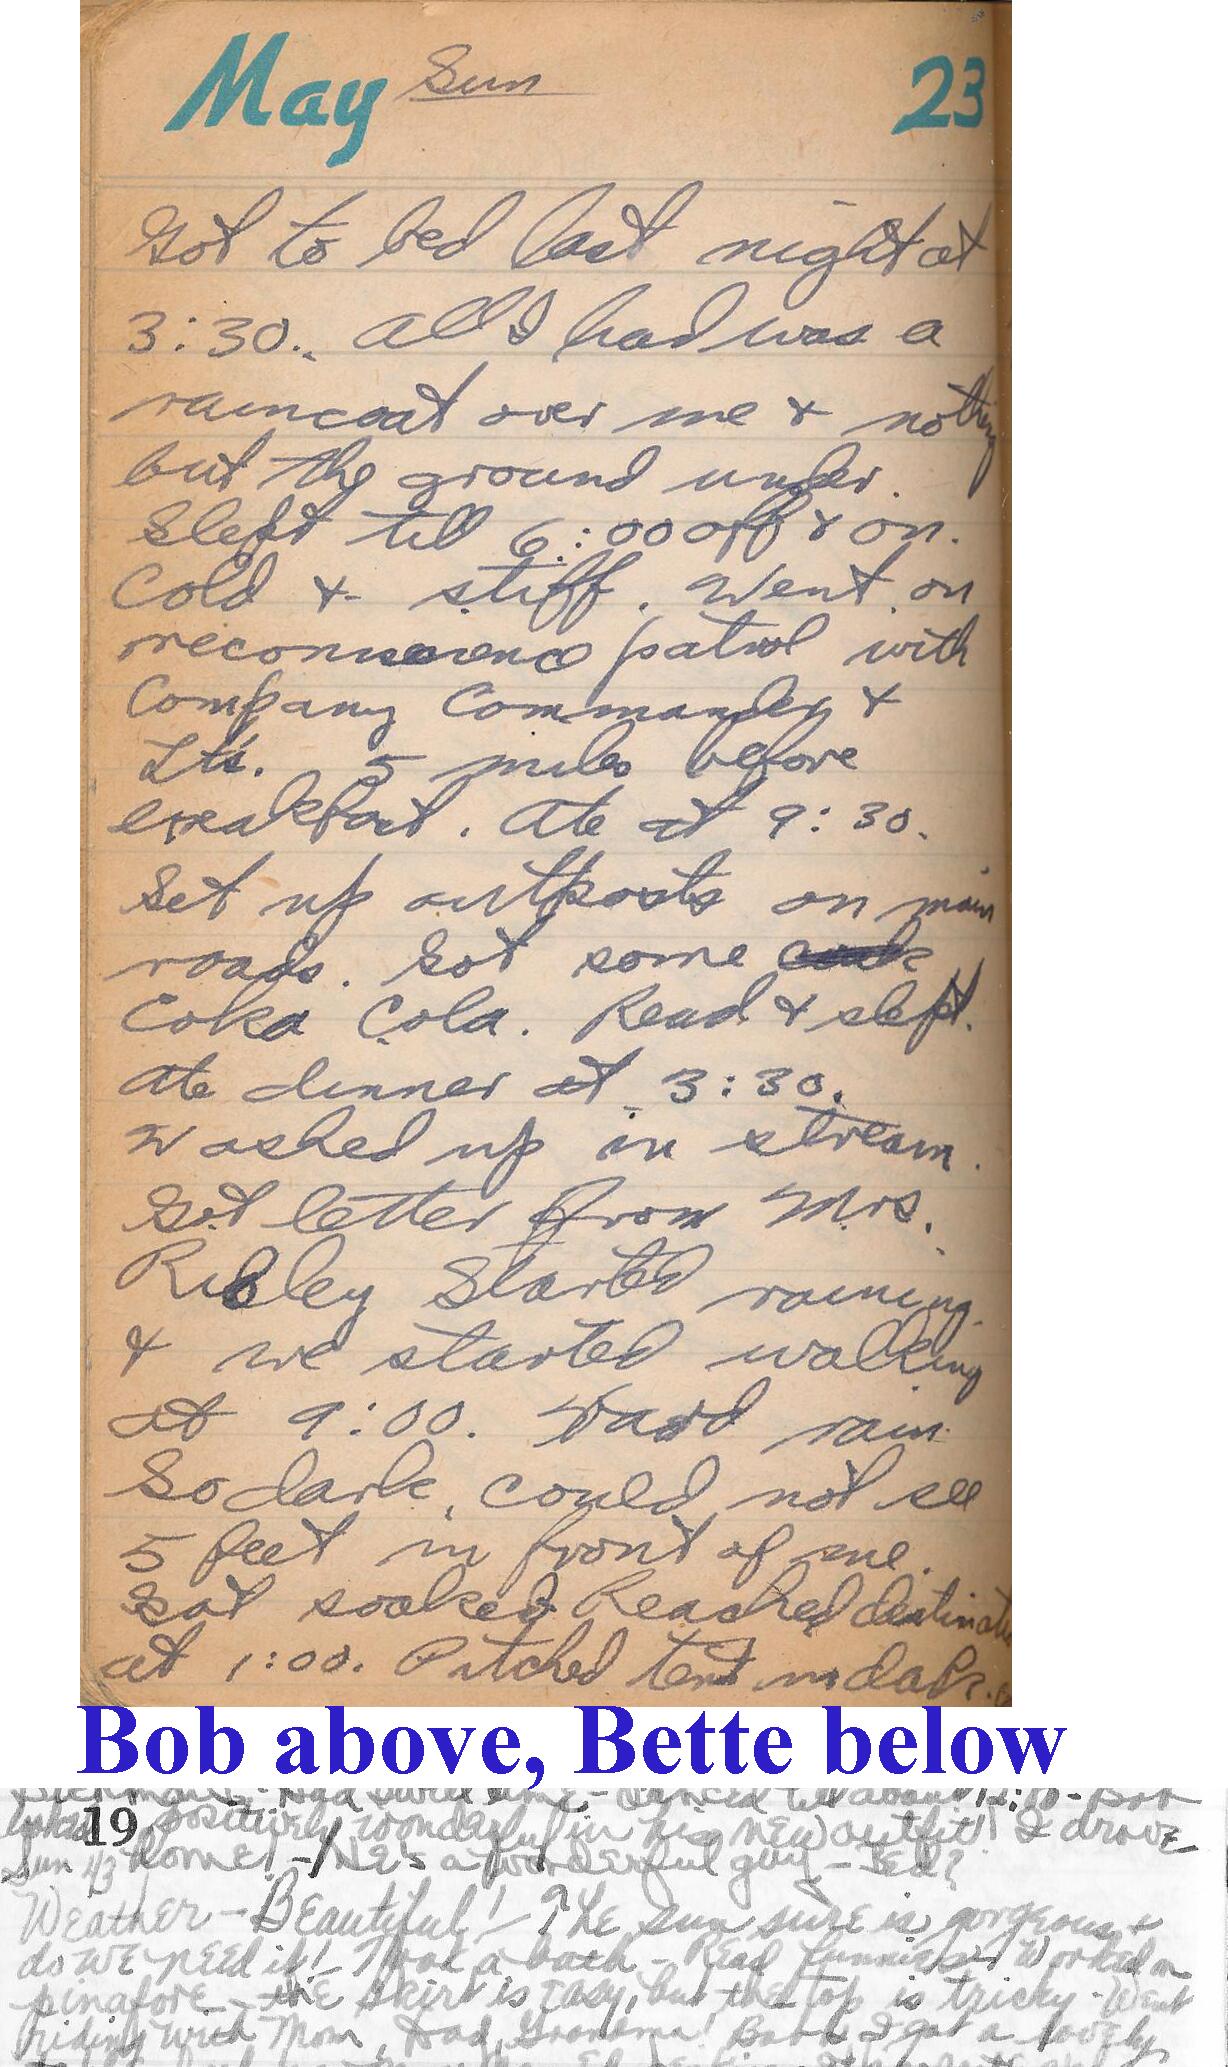 May Sun 23
Got to bed last night at
3:30. All I had was a
raincoat over me & nothing
but the ground under.
Slept till 6:00 off & on.
Cold & stiff. Went on
patrol with
Company Commander &
Lts. 5 miles before
breakfast. Ate at 9:30.
Set up outposts on main
roads. Got some
Coka Cola. Read & slept.
Ate dinner at 3:30.
Washed up in stream.
Got letter from Mrs.
Started raining
& we started walking
at 9:00. Hard rain
So dark, could not see
5 feet in front of me.
Got soaked. Reached destination
at 1:00. Pitched tent in dark.
Bob above, Bette below
Had time - danced till about 12:00 - Bob
looked 19 positively wonderful in his new outfit! I drove
Sun home! - He's a wonderful guy -
Weather - Beautiful! The sun sure is gorgeous &
do we need it! Took a bath - Read funnies & Worked on
pinafore - the skirt is easy, but the top is tricky - Went
riding with Mom, Dad, Grandma! Bob & I got a lovely